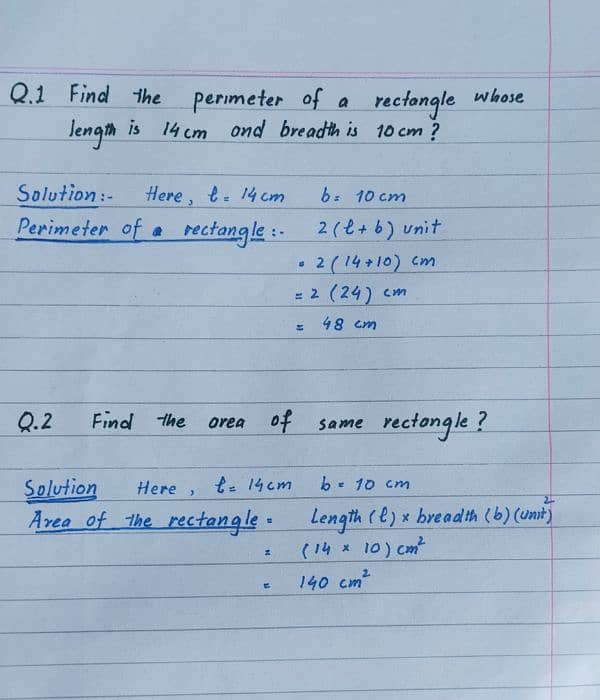 Q.1 Find the perimeter of a rectangle whose
length is 14 cm and breadth is 10 cm ?
Solution :- Here, ℓ = 14 cm b = 10 cm
Perimeter of a rectangle :- 2 (ℓ + b) unit
= 2 (14+10) cm
= 2 (24) cm
= 48 cm
Q.2 Find the area of same rectangle ?
Solution Here , ℓ = 14 cm b = 10 cm
Area of the rectangle = Length (ℓ) x breadth (b) (unit)²
= (14 x 10) cm²
= 140 cm²